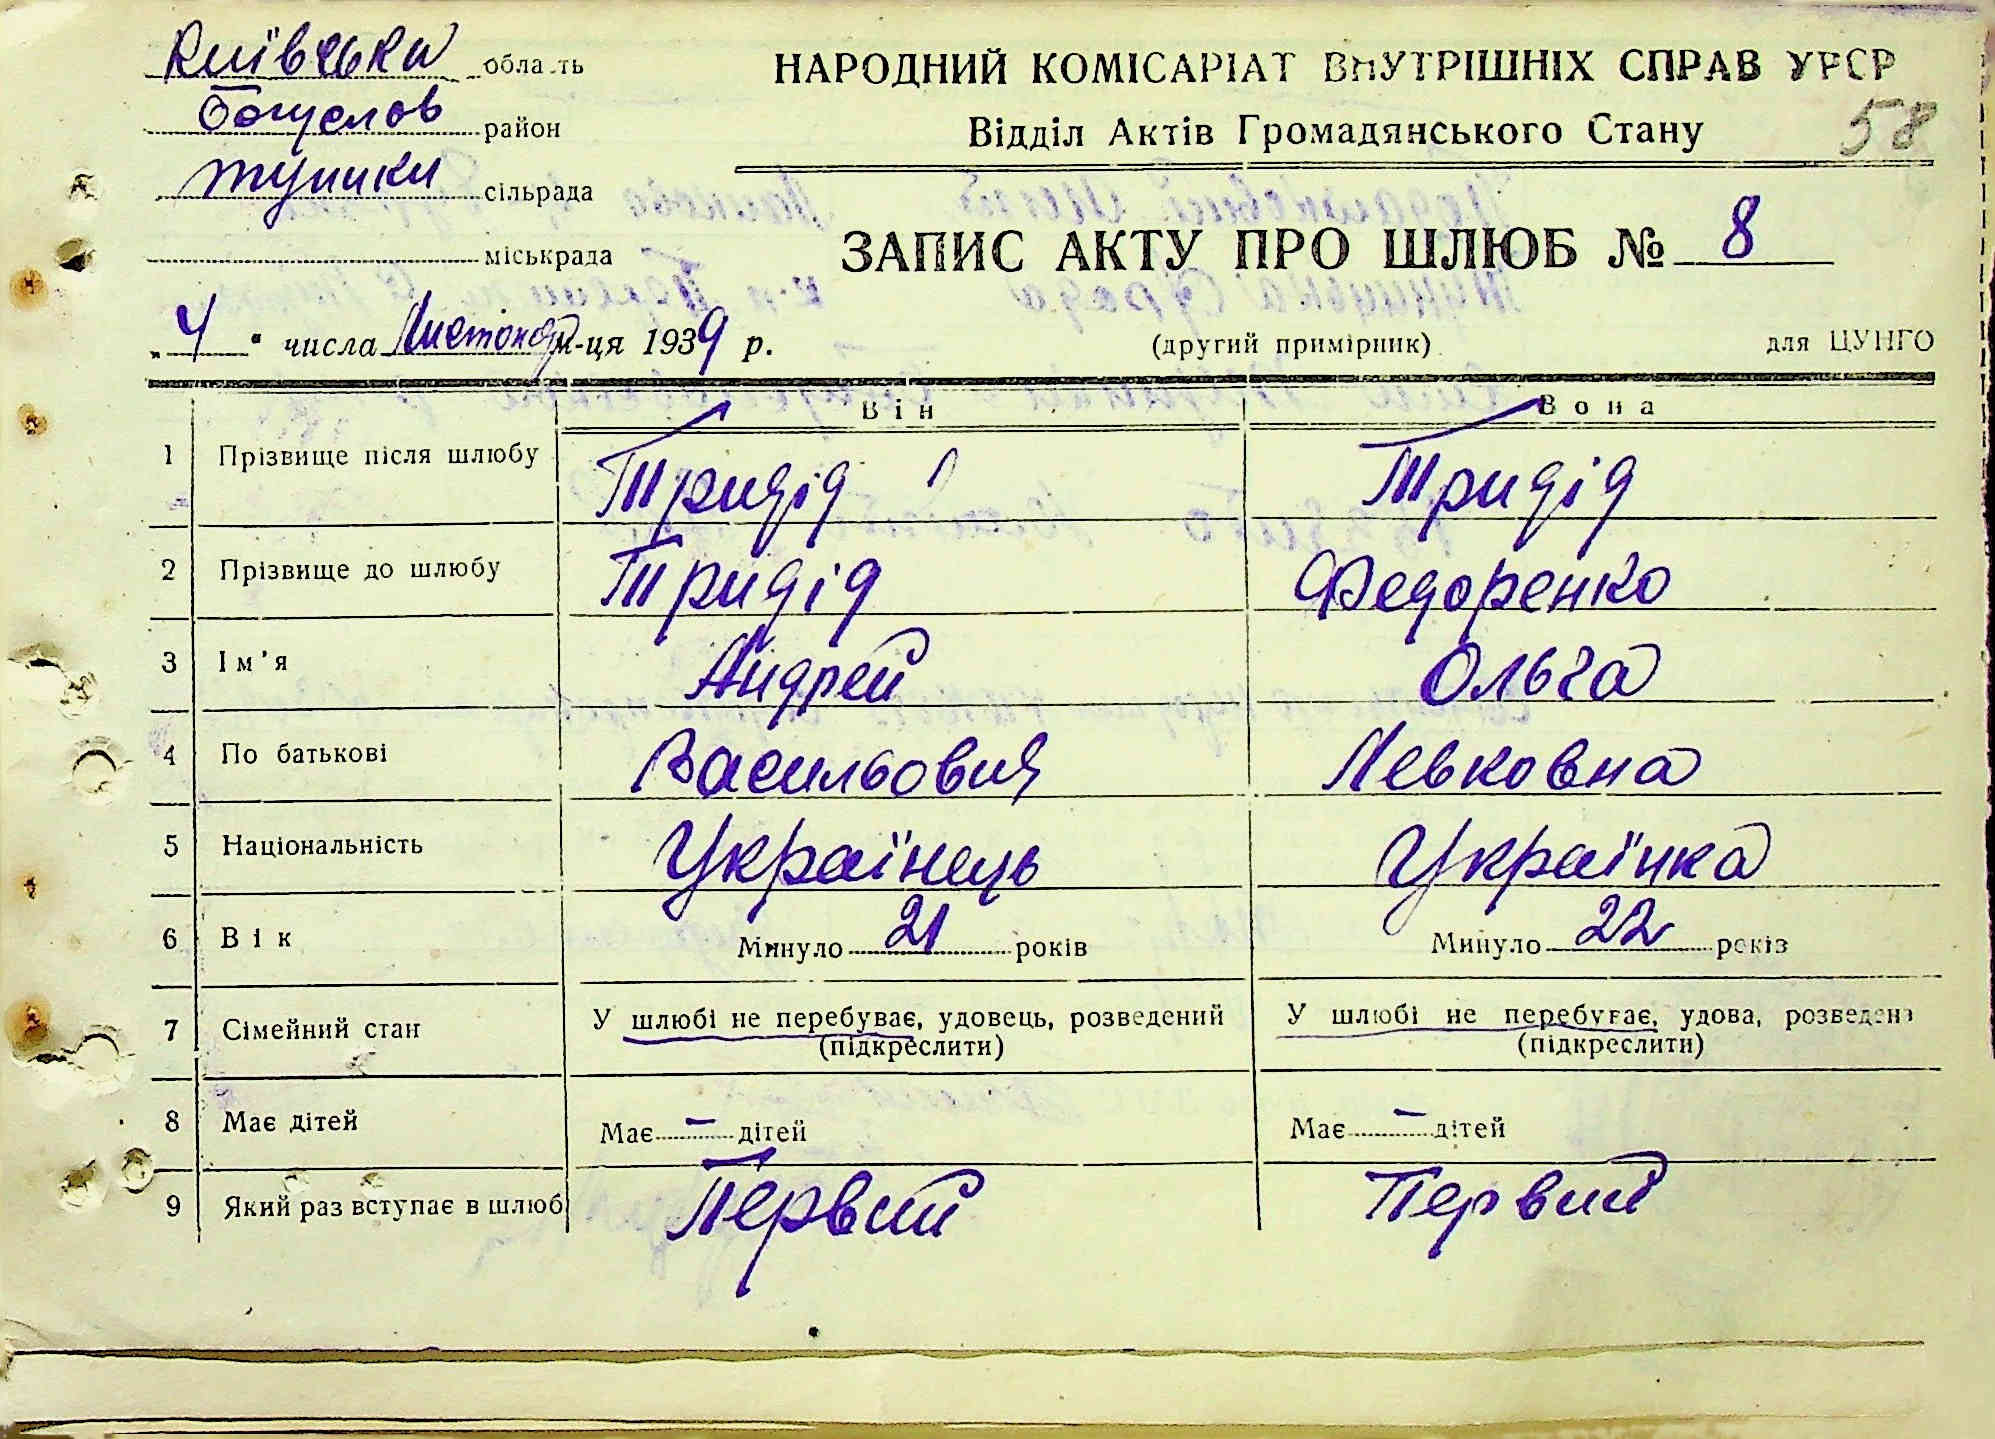 Київська область
Богуслав район
Туники сільрада
міськрада
НАРОДНИЙ КОМІСАРІАТ ВНУТРІШНІХ СПРАВ УРСР
58
Відділ Актів Громадянського Стану
ЗАПИС АКТУ ПРО ШЛЮБ № 8
„ 4 " числа Листопад м-ця 1939 р.
(другий примірник)
для ЦУНГО
Він Вона
1 Прізвище після шлюбу Тридід Тридід
2 Прізвище до шлюбу Тридід Федоренко
3 Ім'я Андрей Ольга
4 По батькові Васильович Левковна
5 Національність Українець Українка
6 Вік Минуло 21 років Минуло 22 років
7 Сімейний стан У шлюбі не перебуває, удовець, розведений У шлюбі не перебуває, удова, розведена
(підкреслити) (підкреслити)
8 Має дітей Має – дітей Має – дітей
9 Який раз вступає в шлюб Первий Первий